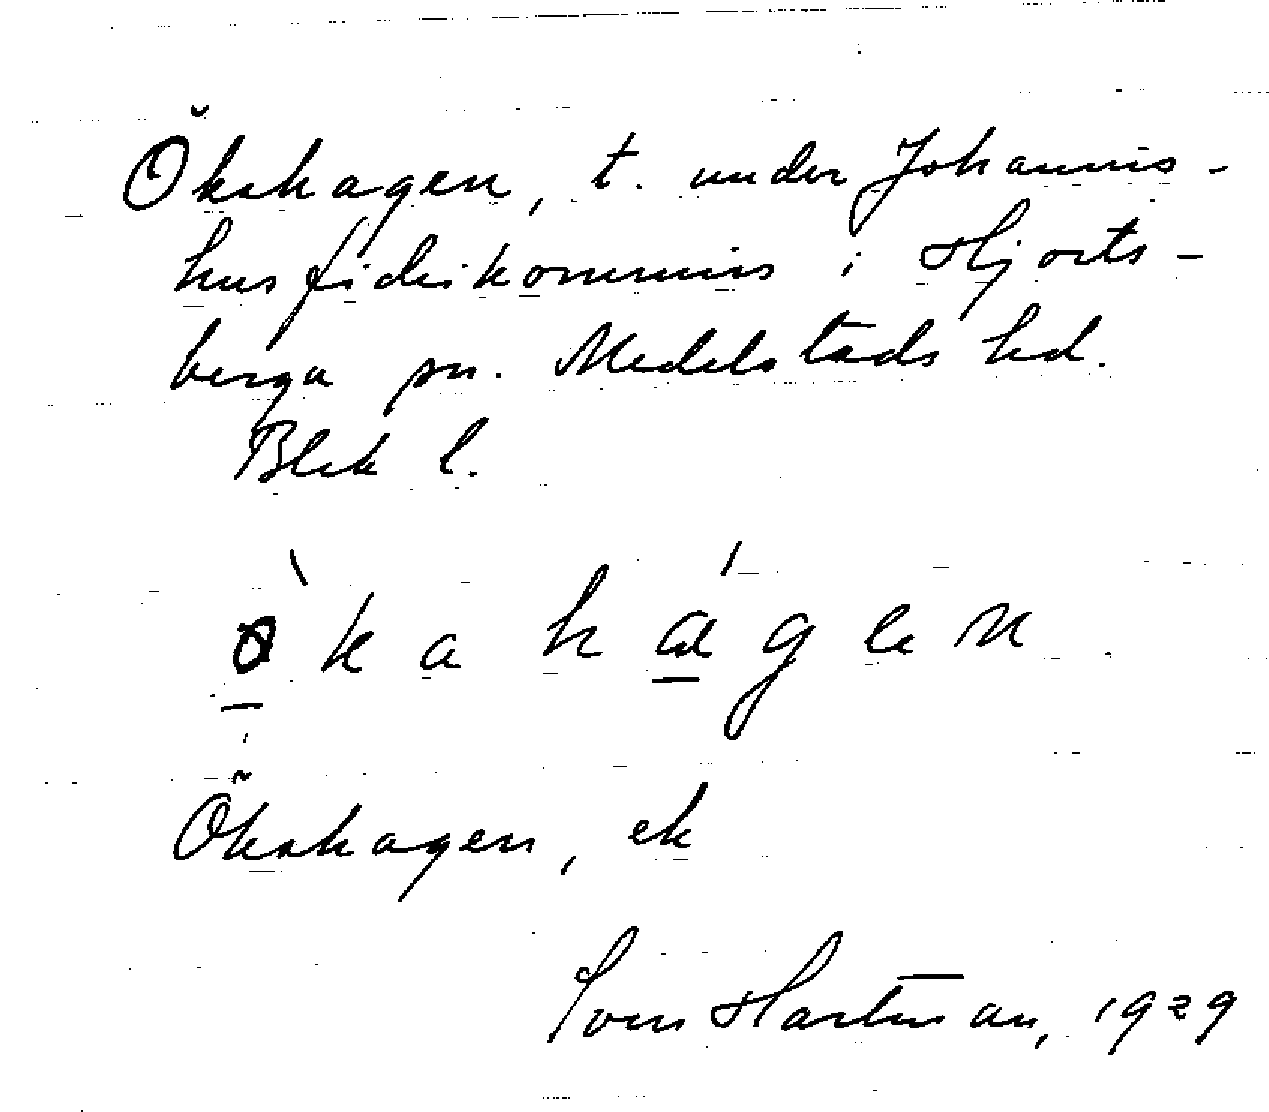 Ökahagen, t. under Johannis-
husfideikommis i Hjorts-
berga sn. Medelstads hd.
Blek l.
ò k a h á g e n
Ökahagen, ek
Sven Hartman, 1929